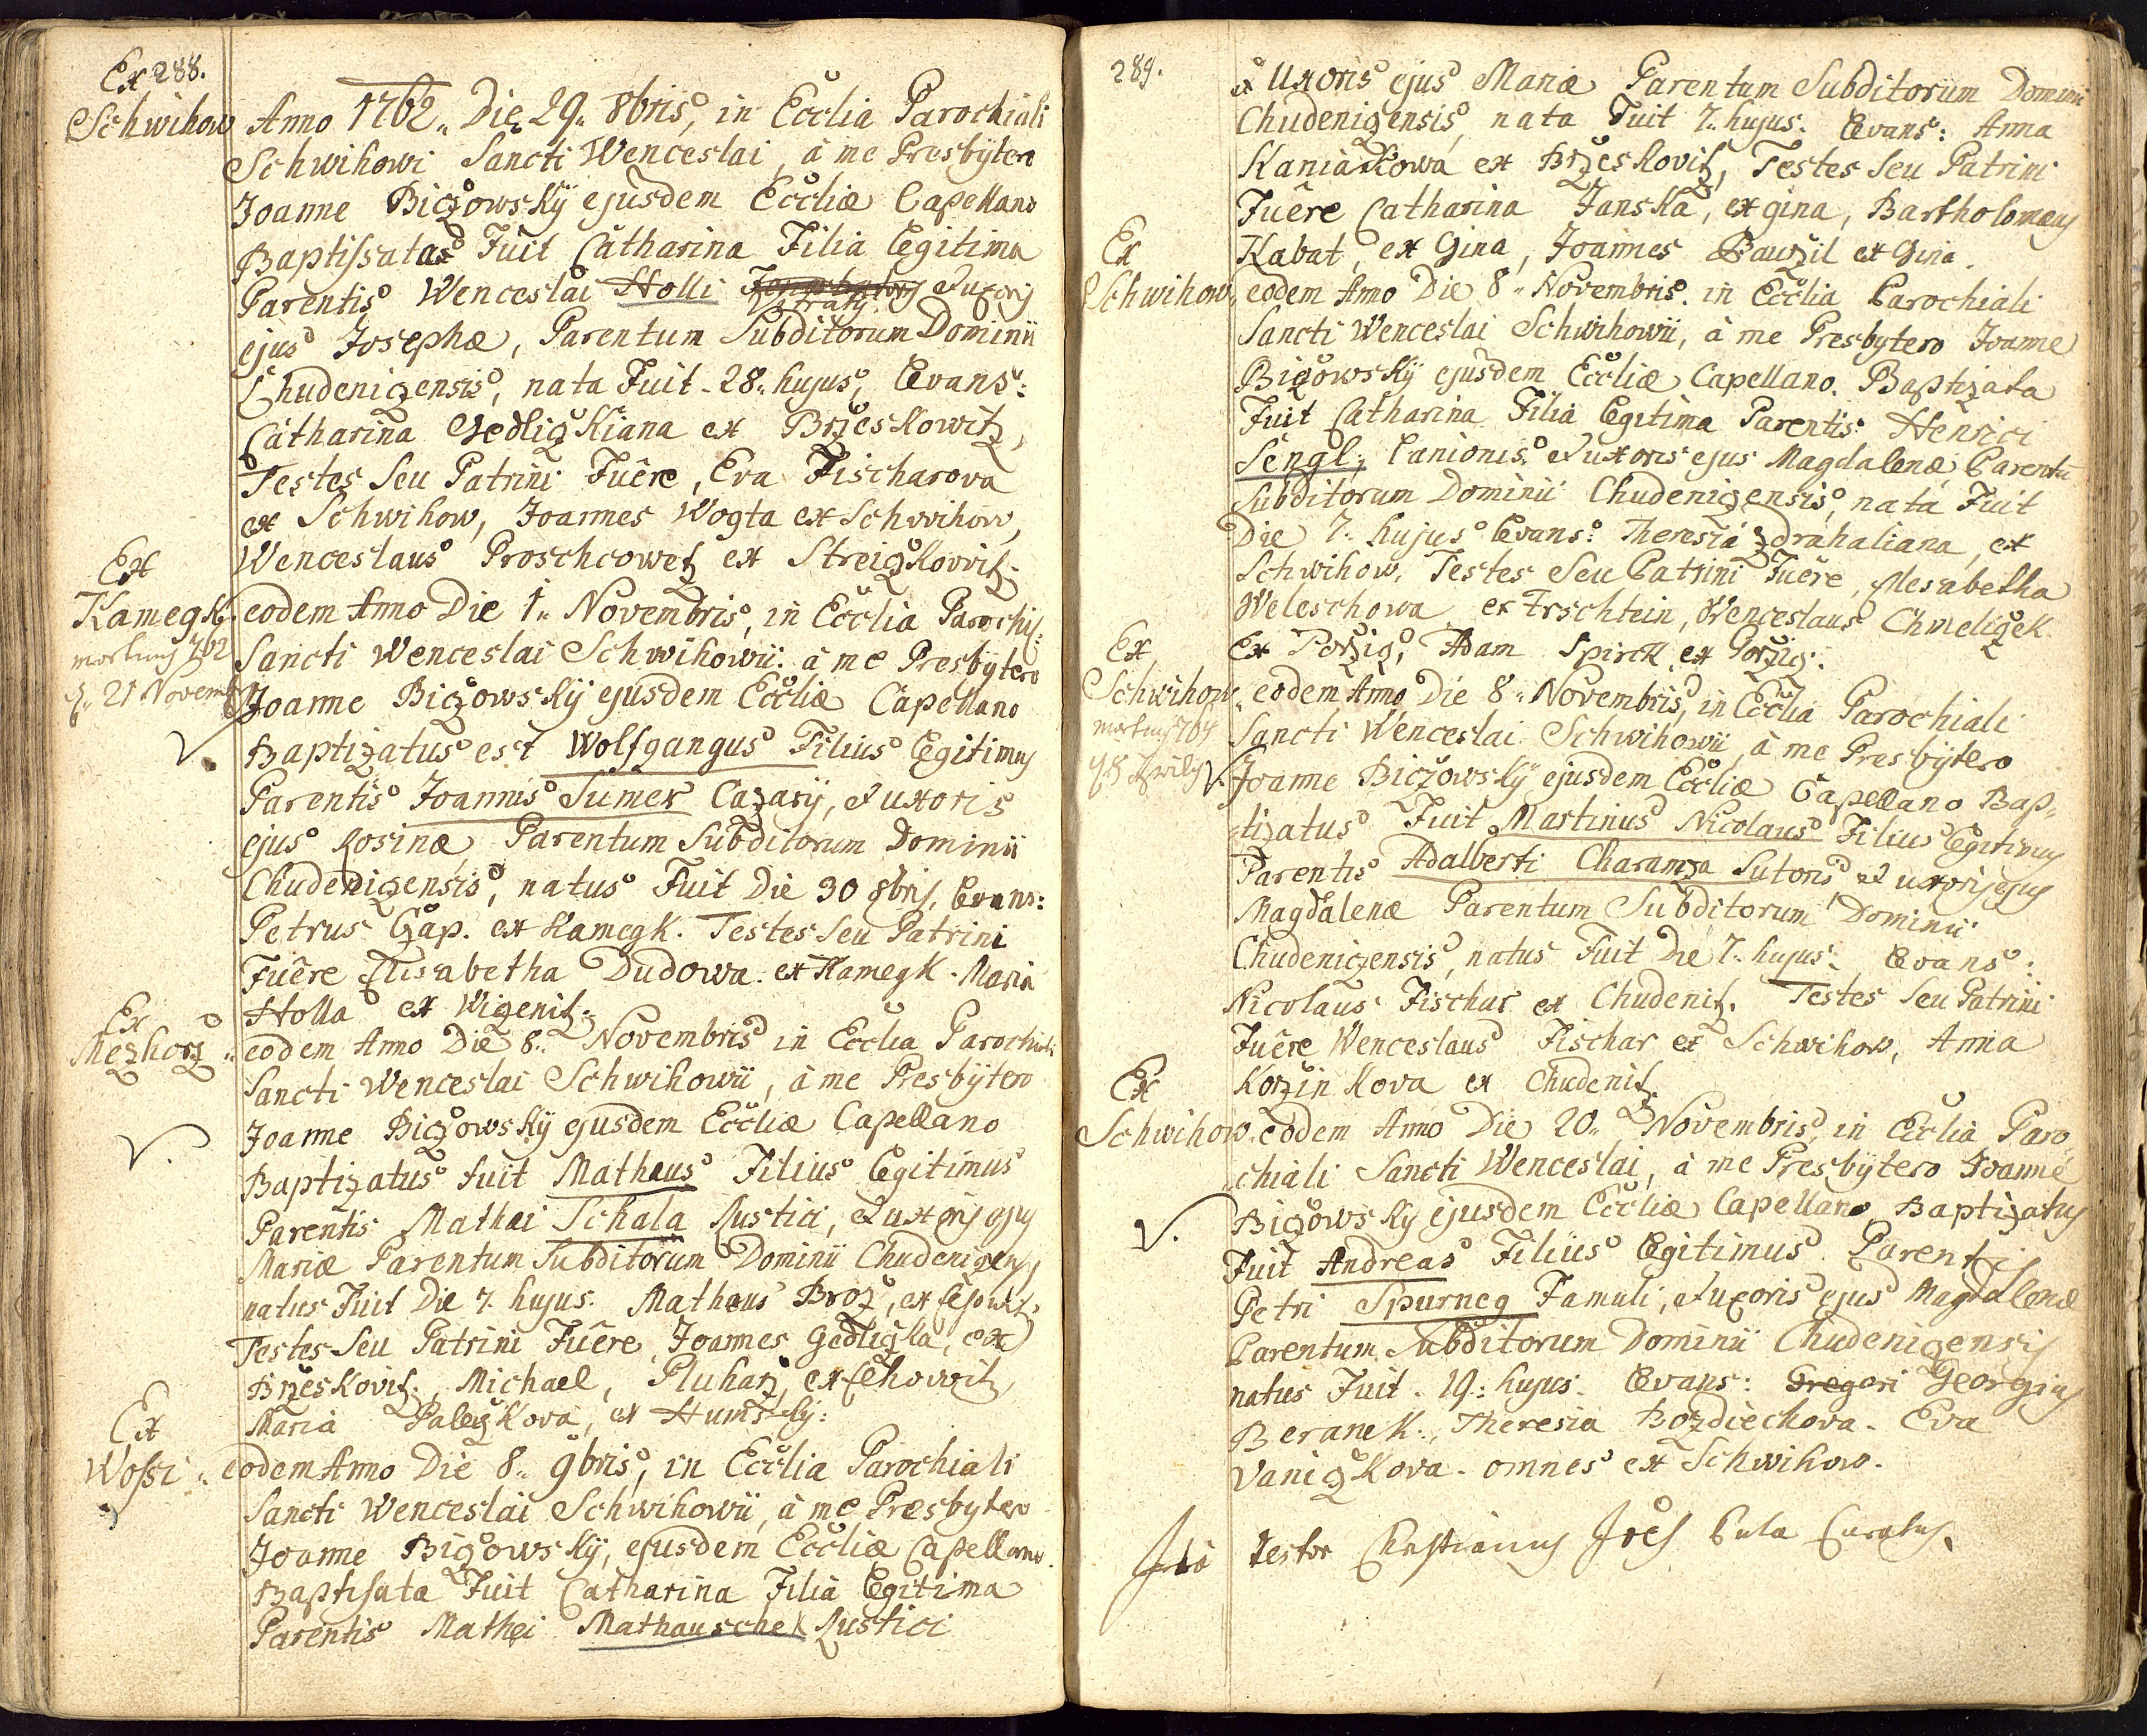 Ex 288.
Schwihow
Anno 1762. Die 29. 8bris, in Ecclia Parochiali
Schwihowi Sancti Wenceslai, à me Presbÿtero
Joanne Biczowskÿ ejusdem Eccliæ Capellano
Baptissatas Fuit Catharina Filia Legitima
Parentis Wenceslai Holli et uxoris
ejus Josephæ, Parentum Subditorum Dominii
Chudeniczensis, nata Fuit 28. hujus, Levans:
Catharina Gedliczkiana ex Brzeskowitz,
Testes Seu Patrini Fuêre, Eva Fischarova
ex Schwihow, Joannes Wogta ex Schwihow,
Wenceslaus Proschcowetz ex Streiczkowitz.
Ex
Kamegk.
mortuus 762
d. 21 Novemb
eodem Anno Die 1. Novembris, in Ecclia Parochi:
Sancti Wenceslai Schwihowii. à me Presbÿtero
Joanne Biczowskÿ ejusdem Eccliæ Capellano
V.
Baptizatus est Wolfgangus Filius Legitimus
Parentis Joannis Sumer Cazarÿ, et uxoris
ejus Rosinæ Parentum Subditorum Dominii
Chudeniczensis, natus Fuit Die 30 8bris, Levans:
Petrus Czap. ex Kamegk. Testes Seu Patrini
Fuêre Elisabetha Dudowa. ex Kamegk. Maria
Holla ex Wiczenitz.
Ex
Mezhorz
eodem Anno Die 8. Novembris in Ecclia Parochiali
Sancti Wenceslai Schwihowii, à me Presbÿtero
Joanne Biczowskÿ ejusdem Eccliæ Capellano
V.
Baptizatus fuit Mathæus Filius Legitimus
Parentis Mathæi Schala Rustici, et uxoris ejus
Mariæ Parentum Subditorum Dominii Chudeniczens,
natus Fuit Die 7. hujus. Mathæus Broz, ex
Testes Seu Patrini Fuêre, Joannes Gedliczka, ex
Brzeskovitz., Michael, Pluharz, ex Lehowitz,
Maria Paleczkova, ex Humskÿ:
Ex
Wossi
eodem Anno Die 8. 9bris, in Ecclia Parochiali
Sancti Wenceslai Schwihowii, à me Presbytero
Joanne Biczowskÿ, ejusdem Eccliæ Capellano.
Baptisata Fuit Catharina Filia Legitima
Parentis Mathei Mathauschek Rustici
289.
et Uxoris ejus Mariæ Parentum Subditorum Dominii
Chudeniczensis, nata Fuit 7. hujus. Levans: Anna
Kaniakowa ex Brzeskovitz, Testes Seu Patrini
Fuêre Catharina Janska, ex gina, Bartholomæus
Kabat, ex Gina, Joannes Bauzil ex Gina.
Ex
Schwihow
eodem Anno Die 8. Novembris. in Ecclia Parochiali
Sancti Wenceslai Schwihowii, à me Presbytero Joanne
Biczowskÿ ejusdem Eccliæ Capellano. Baptizata
Fuit Catharina Filia Legitima Parentis Henrici
Sengl, Lanionis. et uxoris ejus Magdalenæ, Parentū
Subditorum Dominii Chudeniczensis, nata Fuit
Die 7. hujus Levans: Theresia Zdrahaliana, ex
Schwihow, Testes Seu Patrini Fuêre, Alesabetha
Weleschowa ex Erschtein, Wenceslaus Chmeliczek
ex Porzig, Adam Spirck ex Porzig.
Ex
Schwihow
mortuus 764
d. 8 Aprilis
V.
eodem Anno Die 8. Novembris, in Ecclia Parochiali
Sancti Wenceslai Schwihowii, à me Presbÿtero
Joanne Biczowskÿ ejusdem Eccliæ Capellano Bap-
tizatus Fuit Martinus Nicolaus Filius Legitimus
Parentis Adalberti Charamza Sutoris et uxoris ejus
Magdalenæ Parentum Subditorum Dominii
Chudeniczensis, natus Fuit Die 7. hujus. Levans:
Nicolaus Fischar ex Chudenitz. Testes Seu Patrini
Fuêre Wenceslaus Fischar ex Schwihow, Anna
Korzinkova ex Chudenitz.
Ex
Schwihow
eodem Anno Die 20. Novembris, in Ecclia Paro
chiali Sancti Wenceslai, à me Presbÿtero Joanne
V.
Biczowskÿ ejusdem Eccliæ Capellano Baptizatus
Fuit Andreas Filius Legitimus Parentis
Petri Spurneg Famuli, et uxoris ejus Magdalenæ
Parentum Subditorum Dominii Chudeniczensis
natus Fuit. 19. hujus. Levans: Gregori Georgius
Beranek., Theresia Bozdiechova. Eva
Vaniczkova. omnes ex Schwihow.
Ita testor Christianus Joës Pula Curatus.